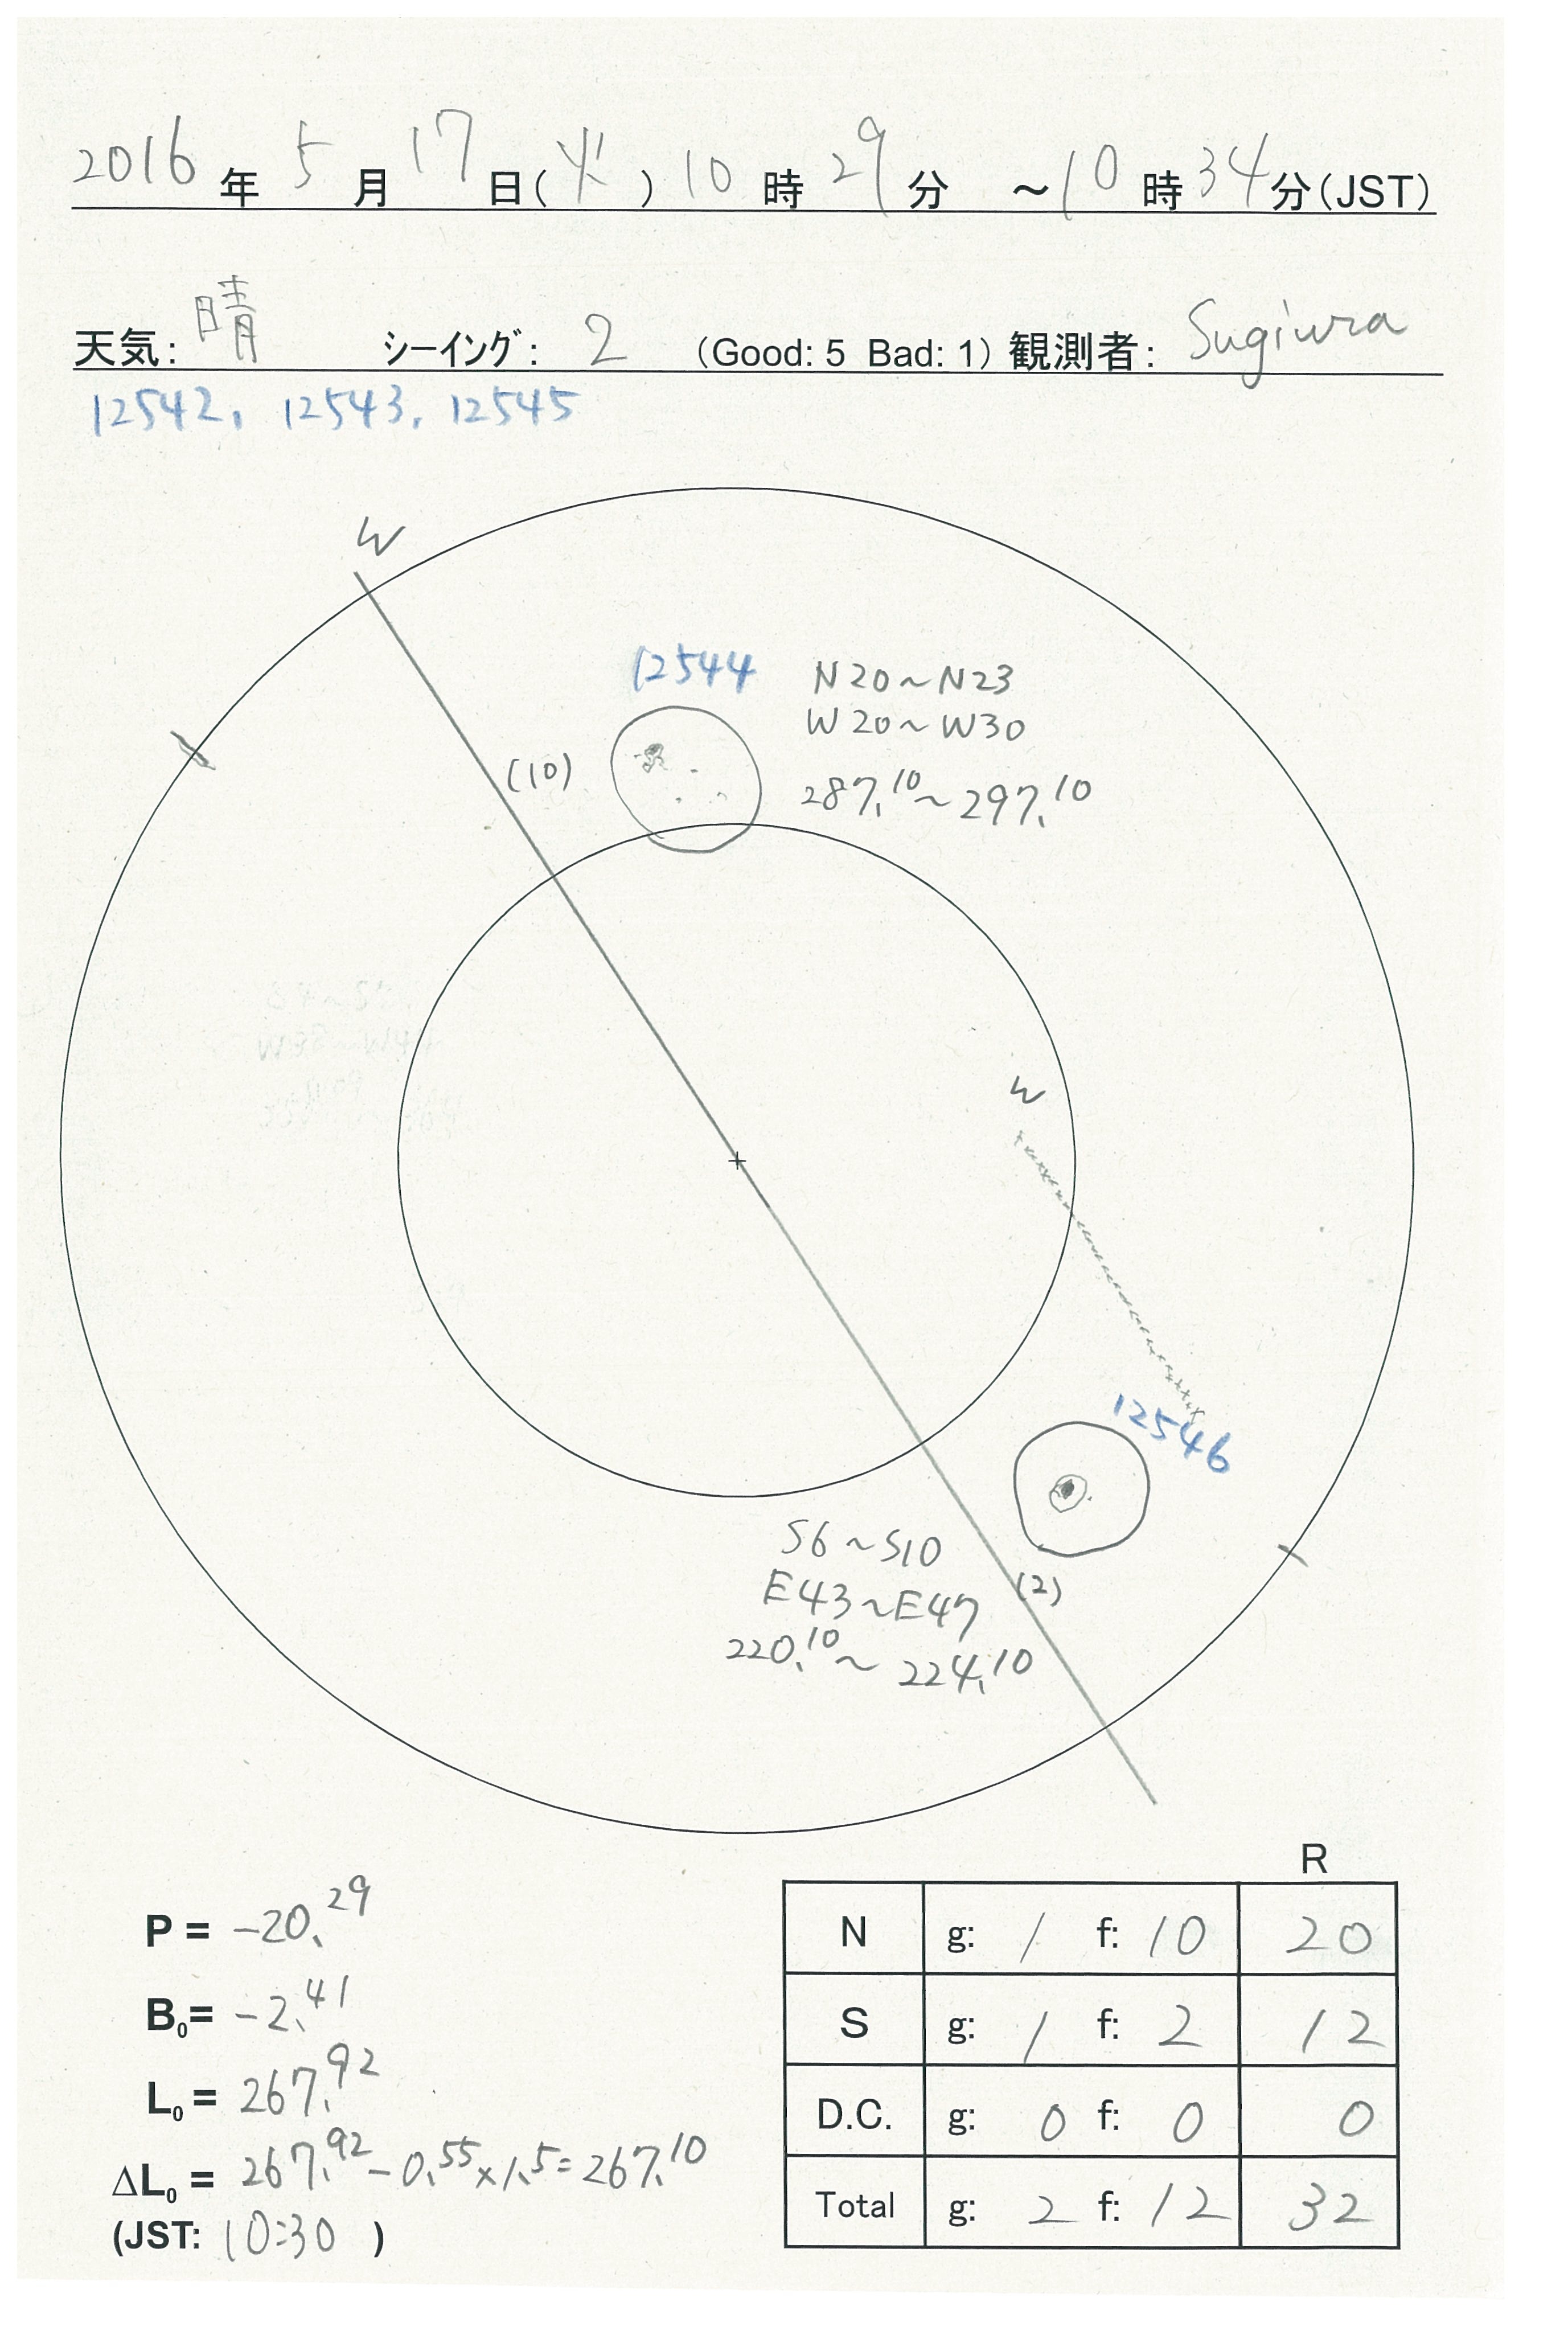 2016年 5月 17日(火) 10時 29分 ~10時34分(JST)
天気: 晴 シーイング: 2 (Good: 5 Bad: 1) 観測者: Sugiura
12542, 12543, 12545
W
12544
N20~N23
W20~W30
(10)
287.10~297.10
W
12546
S6~S10
E43~E47
(2)
220.10~224.10
R
N g: 1 f: 10 20
S g: 1 f: 2 12
D.C. g: 0 f: 0 0
Total g: 2 f: 12 32
P = -20.29
B0= -2.41
L0= 267.92
ΔL0= 267.92-0.55×1.5=267.10
(JST: 10:30 )